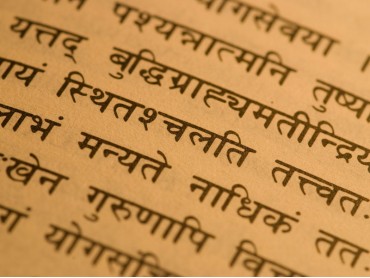 योगसेवया ।
न पश्यन्नात्मनि तुष्य
यत्तद् बुद्धिग्राह्यमतीन्द्रिय
ायं स्थितश्चलति तत्त्वतः
लाभं मन्यते नाधिकं तत
ःखेन गुरुणापि विच
गं योगसंज्ञि